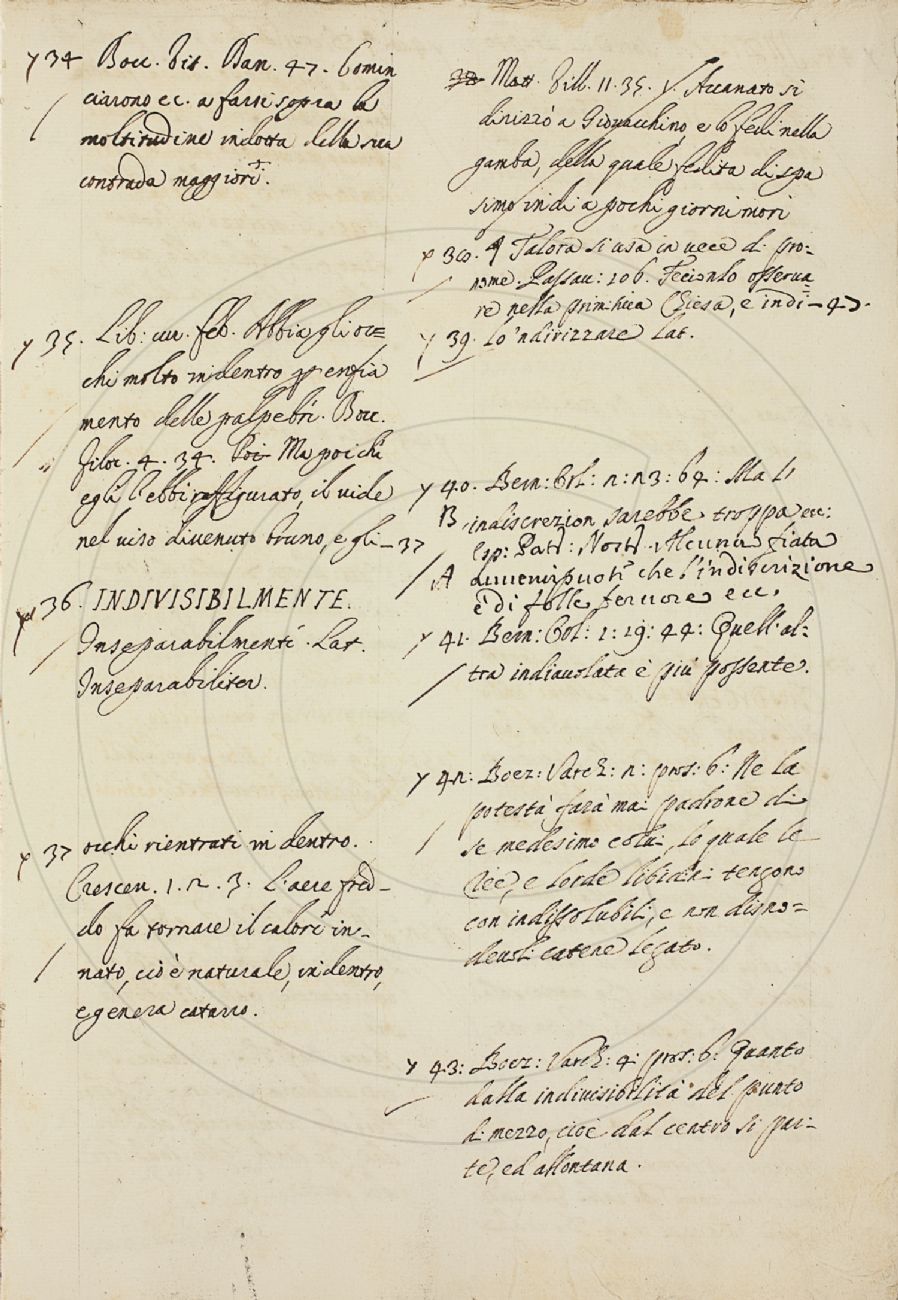 34 Bocc. Vit. Dan. 47. Comin
ciarono ec. a farsi sopra la
moltitudine indotta della sua
contrada maggiori.
35. Lib: cur. feb. Abbia gli oc=
chi molto indentro per enfia
mento delle palpebre. Bocc.
filoc. 4. 34. Ma poichè
egli l'ebbe raffigurato, il vide
nel viso divenuto bruno, e gli – 37
36. INDIVISIBILMENTE.
Inseparabilmente. Lat.
Inseparabiliter.
37 occhi rientrati in dentro.
Crescen. 1. 2. 3. L'aere fred–
do fa tornare il calore in–
nato, cio è naturale, indentro,
e genera catarro.
38 Matt. Vill. 11. 35. Accanato si
dirizzò a Giovacchino, e lo fedì nella
gamba, della quale fedita di spa
simo indi a pochi giorni morì
Talora si usa in vece di pro=
nome. Passav: 106. Fecionlo osserva
re nella primitiva Chiesa, e indi – 47.
39. Lo 'ndirizzare Lat.
40. Bern: Orl: 2: 23: 64: Ma l'
B indiscrezion sarebbe troppa ec:
Esp: Patr: Nostr. Alcuna fiata
A avvenir puote che l'indiscrizione
è di folle fervore ecc.
41. Bern: Orl: 1: 19: 44: Quell'al=
tra indiavolata è più possente.
42: Boez: Varch: 2: pros: 6: Ne la
potestà farà mai padrone di
se medesimo colui, lo quale le
ree, e lorde libidini tengono
con indissolubili, e non disno=
devoli catene legato.
43: Boez: Varch: 4: pros: 6: Quanto
dalla indivisibilità del punto
di mezzo, cioè dal centro si par=
te, ed allontana.